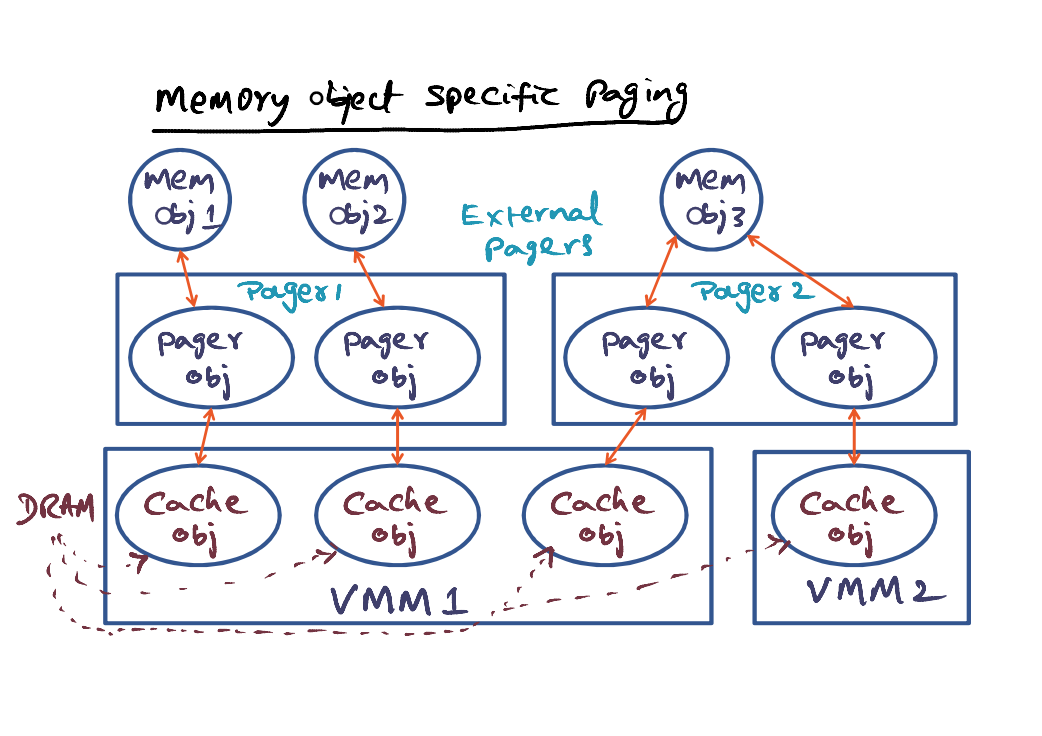 Memory object specific Paging
mem
obj 1
mem
obj2
mem
obj3
External
pagers
Pager 1
Pager 2
pager
obj
pager
obj
pager
obj
pager
obj
DRAM
Cache
obj
Cache
obj
Cache
obj
Cache
obj
VMM 1
VMM 2